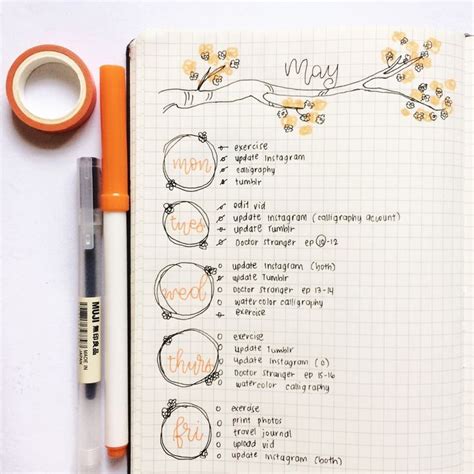 May
mon
exercise
update Instagram
calligraphy
tumblr
tues
edit vid
update Instagram (calligraphy account)
update Tumblr
Doctor Stranger ep 10-12
wed
update Instagram (both)
update Tumblr
Doctor Stranger ep 13-14
watercolor calligraphy
exercise
thurs
exercise
update Tumblr
update Instagram
Doctor Stranger ep 15-16
watercolor calligraphy
fri
exercise
print photos
travel journal
upload vid
update Instagram (both)
MUJI 無印良品
MADE IN
JAPAN